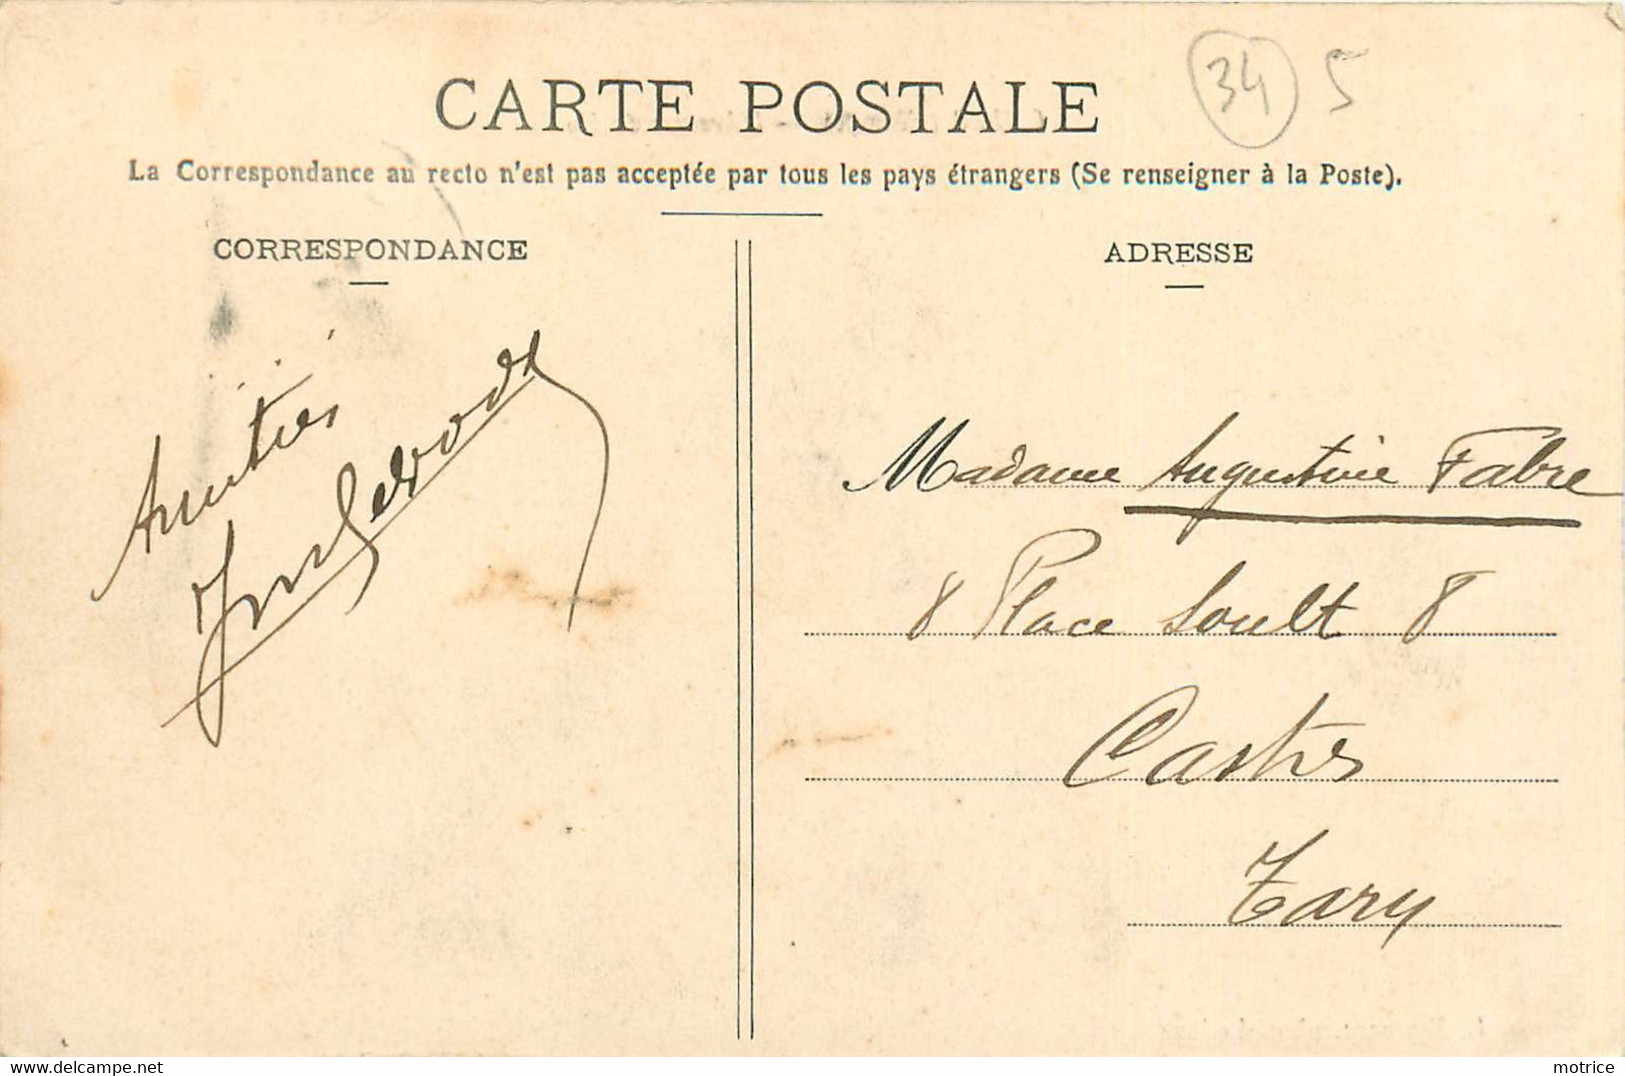 CARTE POSTALE
34 5
La Correspondance au recto n'est pas acceptée par tous les pays étrangers (Se renseigner à la Poste).
CORRESPONDANCE
Amitiés
ADRESSE
Madame Augustine Fabre
8 Place Soult 8
Castres
Tarn
motrice